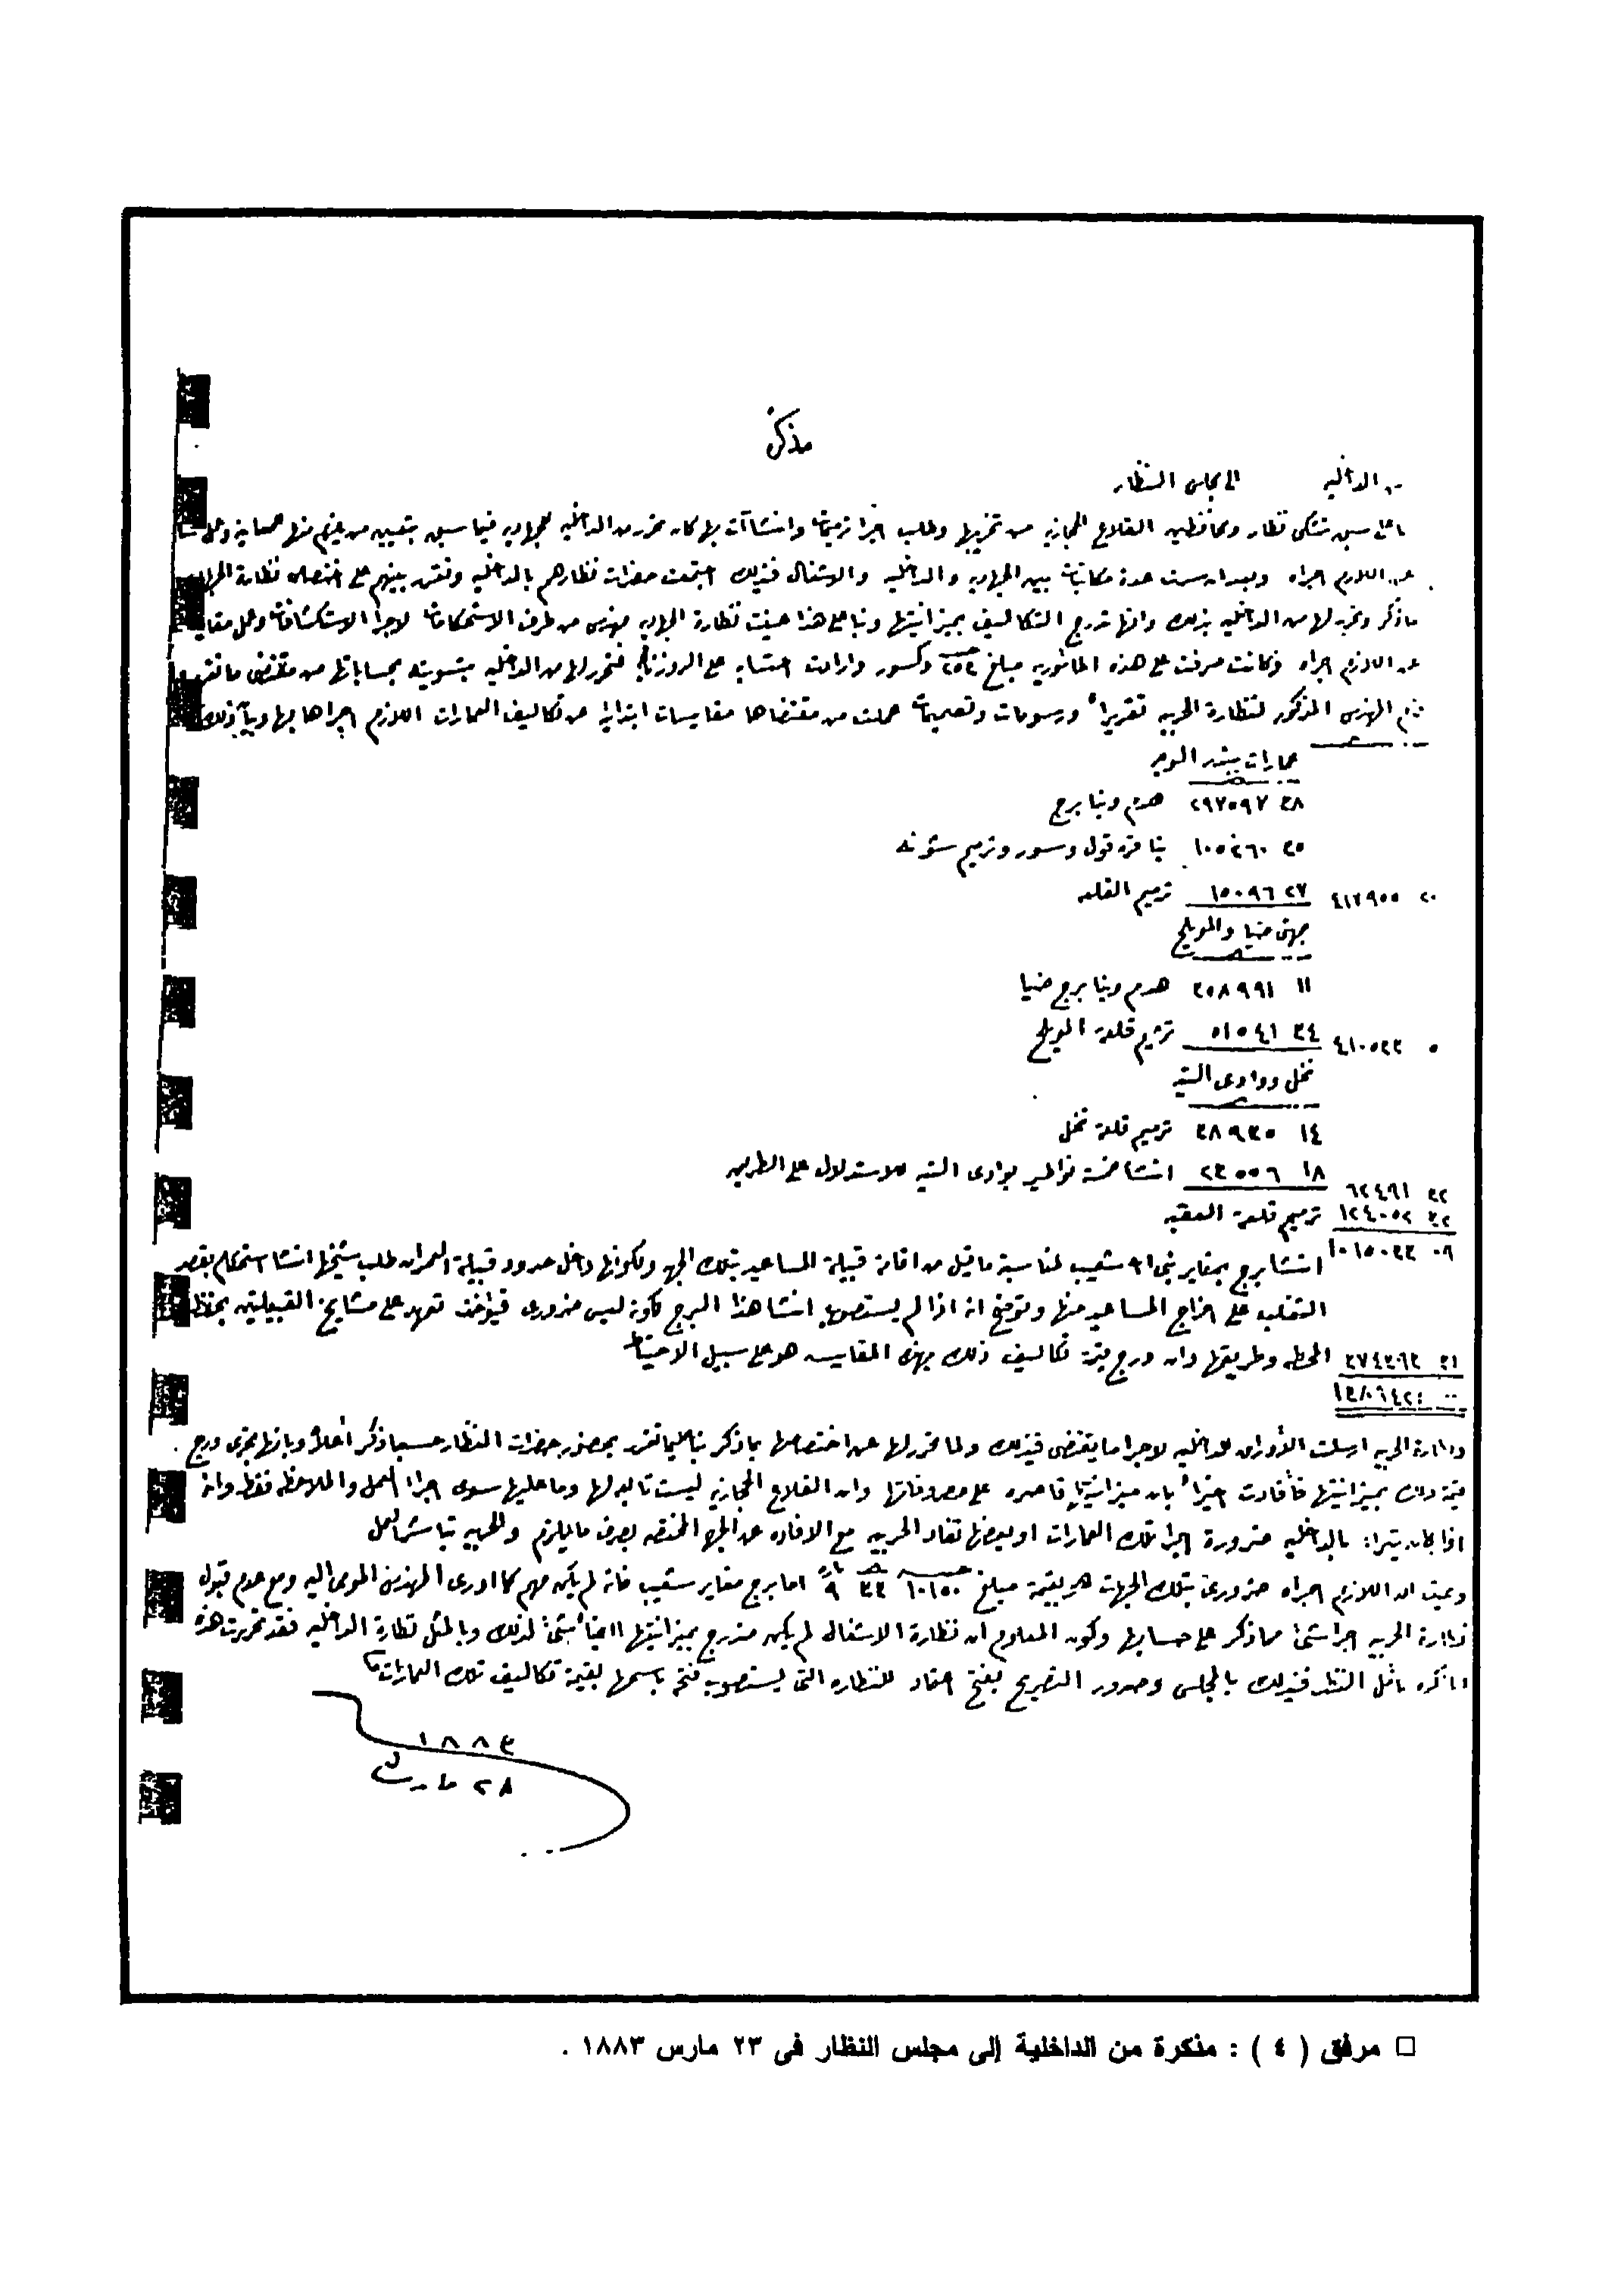 مذكرة
من الداخلية الى مجلس النظار
سبق تشكى نظار ومحافظين القلاع الحجازيه من تخريبها وطلب اجرا ترميمات وانشاآت بها كان تحرر من الداخليه للجهاديه فيما سبق بتعيين من يلزم منها لمعاينة وعمل
عن اللازم اجراه وبعد ان سبقت عدة مكاتبات بين الجهاديه والداخليه والاشغال فى ذلك اجتمعت حضرات نظارهم بالداخليه وتقرر بينهم على اختصاص نظارة الجهاديه
ما ذكر وتحرر لها من الداخليه بذلك وانها تدرج التكاليف بميزانيتها وبنا على هذا عينت نظارة الجهاديه مهندس من طرف الاستحكامات لاجرا الاستكشافات وعمل مقايسه
عن اللازم اجراه وكانت صرفت على هذه المأموريه مبلغ ٢٥٣ وكسور وارادت احتسابه على الروزنامجه فتحرر لها من الداخليه بتسويته بحساباتها من مقتضى ما تقرر
المهندس المذكور لنظارة الحربيه تقريراً ورسومات وتصميمات عملت من مقتضاها مقايسات ابتدائية عن تكاليف العمارات اللازم اجراها بها وبيان ذلك
عمارات ببندر الوجه
٣٨ ٢٩٧٥٩٧ هدم وبنا برج
٣٥ ١٠٥٢٦٠ بنا قره قول وسور وترميم شونه
٢٠ ٤١٧٩٥٥ ٢٧ ١٥٠٩٦ ترميم القلعه
جهتى ضبا والمويلح
١١ ٣٥٨٩٩١ هدم وبنا برج ضبا
٥ ٤١٠٥٣٣ ٣٤ ٥١٥٤١ ترميم قلعة المويلح
نخل ووادى التيه
١٤ ٣٨٩٣٥ ترميم قلعة نخل
١٨ ٢٣٥٥٦ انشا خمسة نواطير بوادى التيه للاستدلال على الطريق
٣٢ ٦٢٤٩١
٣٢ ١٢٤٠٥٢ ترميم قلعة العقبه
٠٩ ١٠١٥٠٣٣ انشا برج بمغاير شعيب لمناسبة ما قيل من اقامة قبيلة المساعيد بتلك الجهه ولكونها داخل حدود قبيلة العمران طلب شيخها انشا استحكام بقصد
التغلب على اخراج المساعيد منها وتوضح انه اذا لم يستصوب انشا هذا البرج لكونه ليس ضرورى فيؤخذ تعهد على مشايخ القبيلتين بحفظ
٣١ ٣٧٤٣٦٢ المحطه وطريقها وان درج قيمة تكاليف ذلك بهذه المقايسه هو على سبيل الاحتياط
ونظارة الحربيه ارسلت الأوراق للداخليه لاجرا ما يقتضى فى ذلك ولما تحرر لها عن اختصاصها بما ذكر بنا على ما تقرر بحضور حضرات النظار حسبما ذكر أعلاه وبانها تجرى درج
قيمة ذلك بميزانيتها فأفادت اخيراً بان ميزانيتها قاصره على مصروفاتها وان القلاع الحجازيه ليست تابعه لها وما عليها سوى اجرا العمل والملاحظه فقط وانه
اذا كان يتراا بالداخليه ضرورة اجرا تلك العمارات او بعضها تفاد الحربيه مع الافاده عن الجهه المختصه بصرف ما يلزم والحربيه تباشر العمل
وحيث ان اللازم اجراه ضرورى بتلك الجهات هو بقيمة مبلغ ١٠١٥٠ ٣٣ ٩ اما برج مغاير شعيب فانه لم يكن مهم كما اورى المهندس المومى اليه ومع عدم قبول
نظارة الحربيه اجرا شئ مما ذكر على حسابها وكون المعلوم ان نظارة الاشغال لم يكن مندرج بميزانيتها ايضاً شئ لذلك وبالمثل نظارة الداخليه فقد تحررت هذه
المذكره بأمل النظر فى ذلك بالمجلس وصدور التصريح بفتح اعتماد للنظاره التى يستصوب فتحه باسمها بقيمة تكاليف تلك العمارات
١٨٨٣
٢٨ مارس
□ مرفق ( ٤ ) : مذكرة من الداخلية إلى مجلس النظار فى ٢٣ مارس ١٨٨٣ .